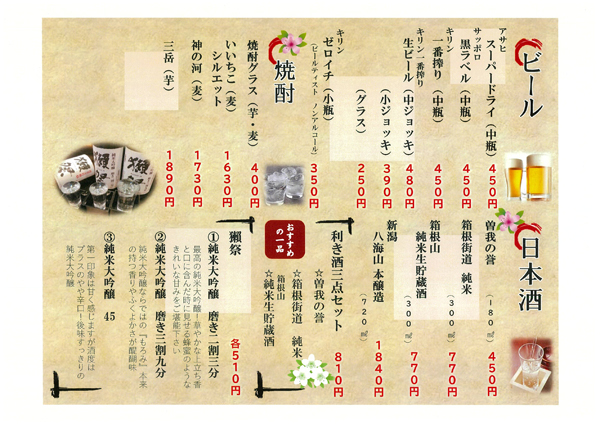 ビール
アサヒ
スーパードライ（中瓶） 450円
サッポロ
黒ラベル（中瓶） 450円
キリン
一番搾り（中瓶） 450円
キリン一番搾り
生ビール（中ジョッキ） 480円
（小ジョッキ） 390円
（グラス） 250円
キリン
ゼロイチ（小瓶） 350円
（ビールテイスト ノンアルコール）
焼酎
焼酎グラス（芋・麦） 400円
いいちこ（麦） 1630円
シルエット
神の河（麦） 1730円
三岳（芋） 1890円
日本酒
曽我の誉（180㎖） 450円
箱根街道 純米（300㎖） 770円
箱根山
純米生貯蔵酒（300㎖） 770円
新潟
八海山 本醸造（720㎖） 1840円
利き酒三点セット 810円
☆曽我の誉
☆箱根街道 純米
箱根山
☆純米生貯蔵酒
おすすめの一品
獺祭 各510円
①純米大吟醸 磨き二割三分
最高の純米大吟醸！華やかな上立ち香
と口に含んだ時に見せる蜂蜜のような
きれいな甘みをご堪能下さい
②純米大吟醸 磨き三割九分
純米大吟醸ならではの『もろみ』本来
の持つ香りやふくよかさが醍醐味
③純米大吟醸 45
第一印象は甘く感じますが酒度は
プラスのやや辛口！後味すっきりの
純米大吟醸